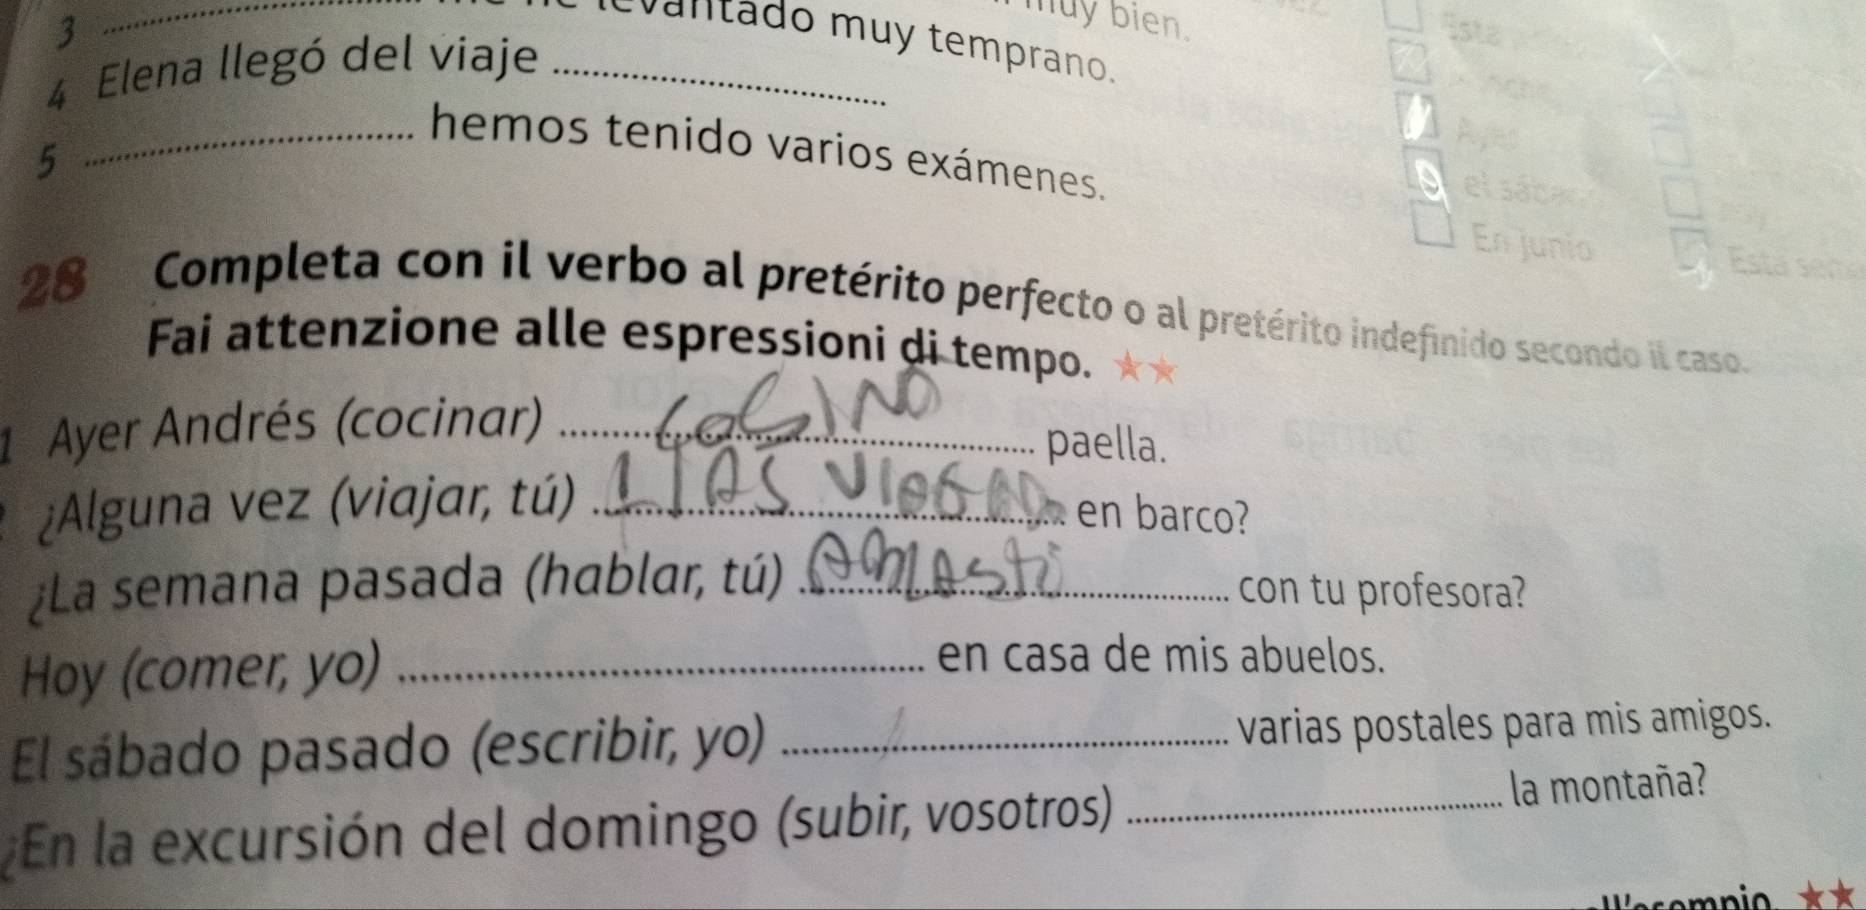 muy bien.
3 levantado muy temprano.
4 Elena llegó del viaje
5 hemos tenido varios exámenes.
Ayer
En junio
28 Completa con il verbo al pretérito perfecto o al pretérito indefinido secondo il caso.
Fai attenzione alle espressioni di tempo. ★★
1 Ayer Andrés (cocinar) COCINO paella.
¿Alguna vez (viajar, tú) en barco?
¿La semana pasada (hablar, tú) con tu profesora?
Hoy (comer, yo) en casa de mis abuelos.
El sábado pasado (escribir, yo) varias postales para mis amigos.
¿En la excursión del domingo (subir, vosotros) la montaña?
★★